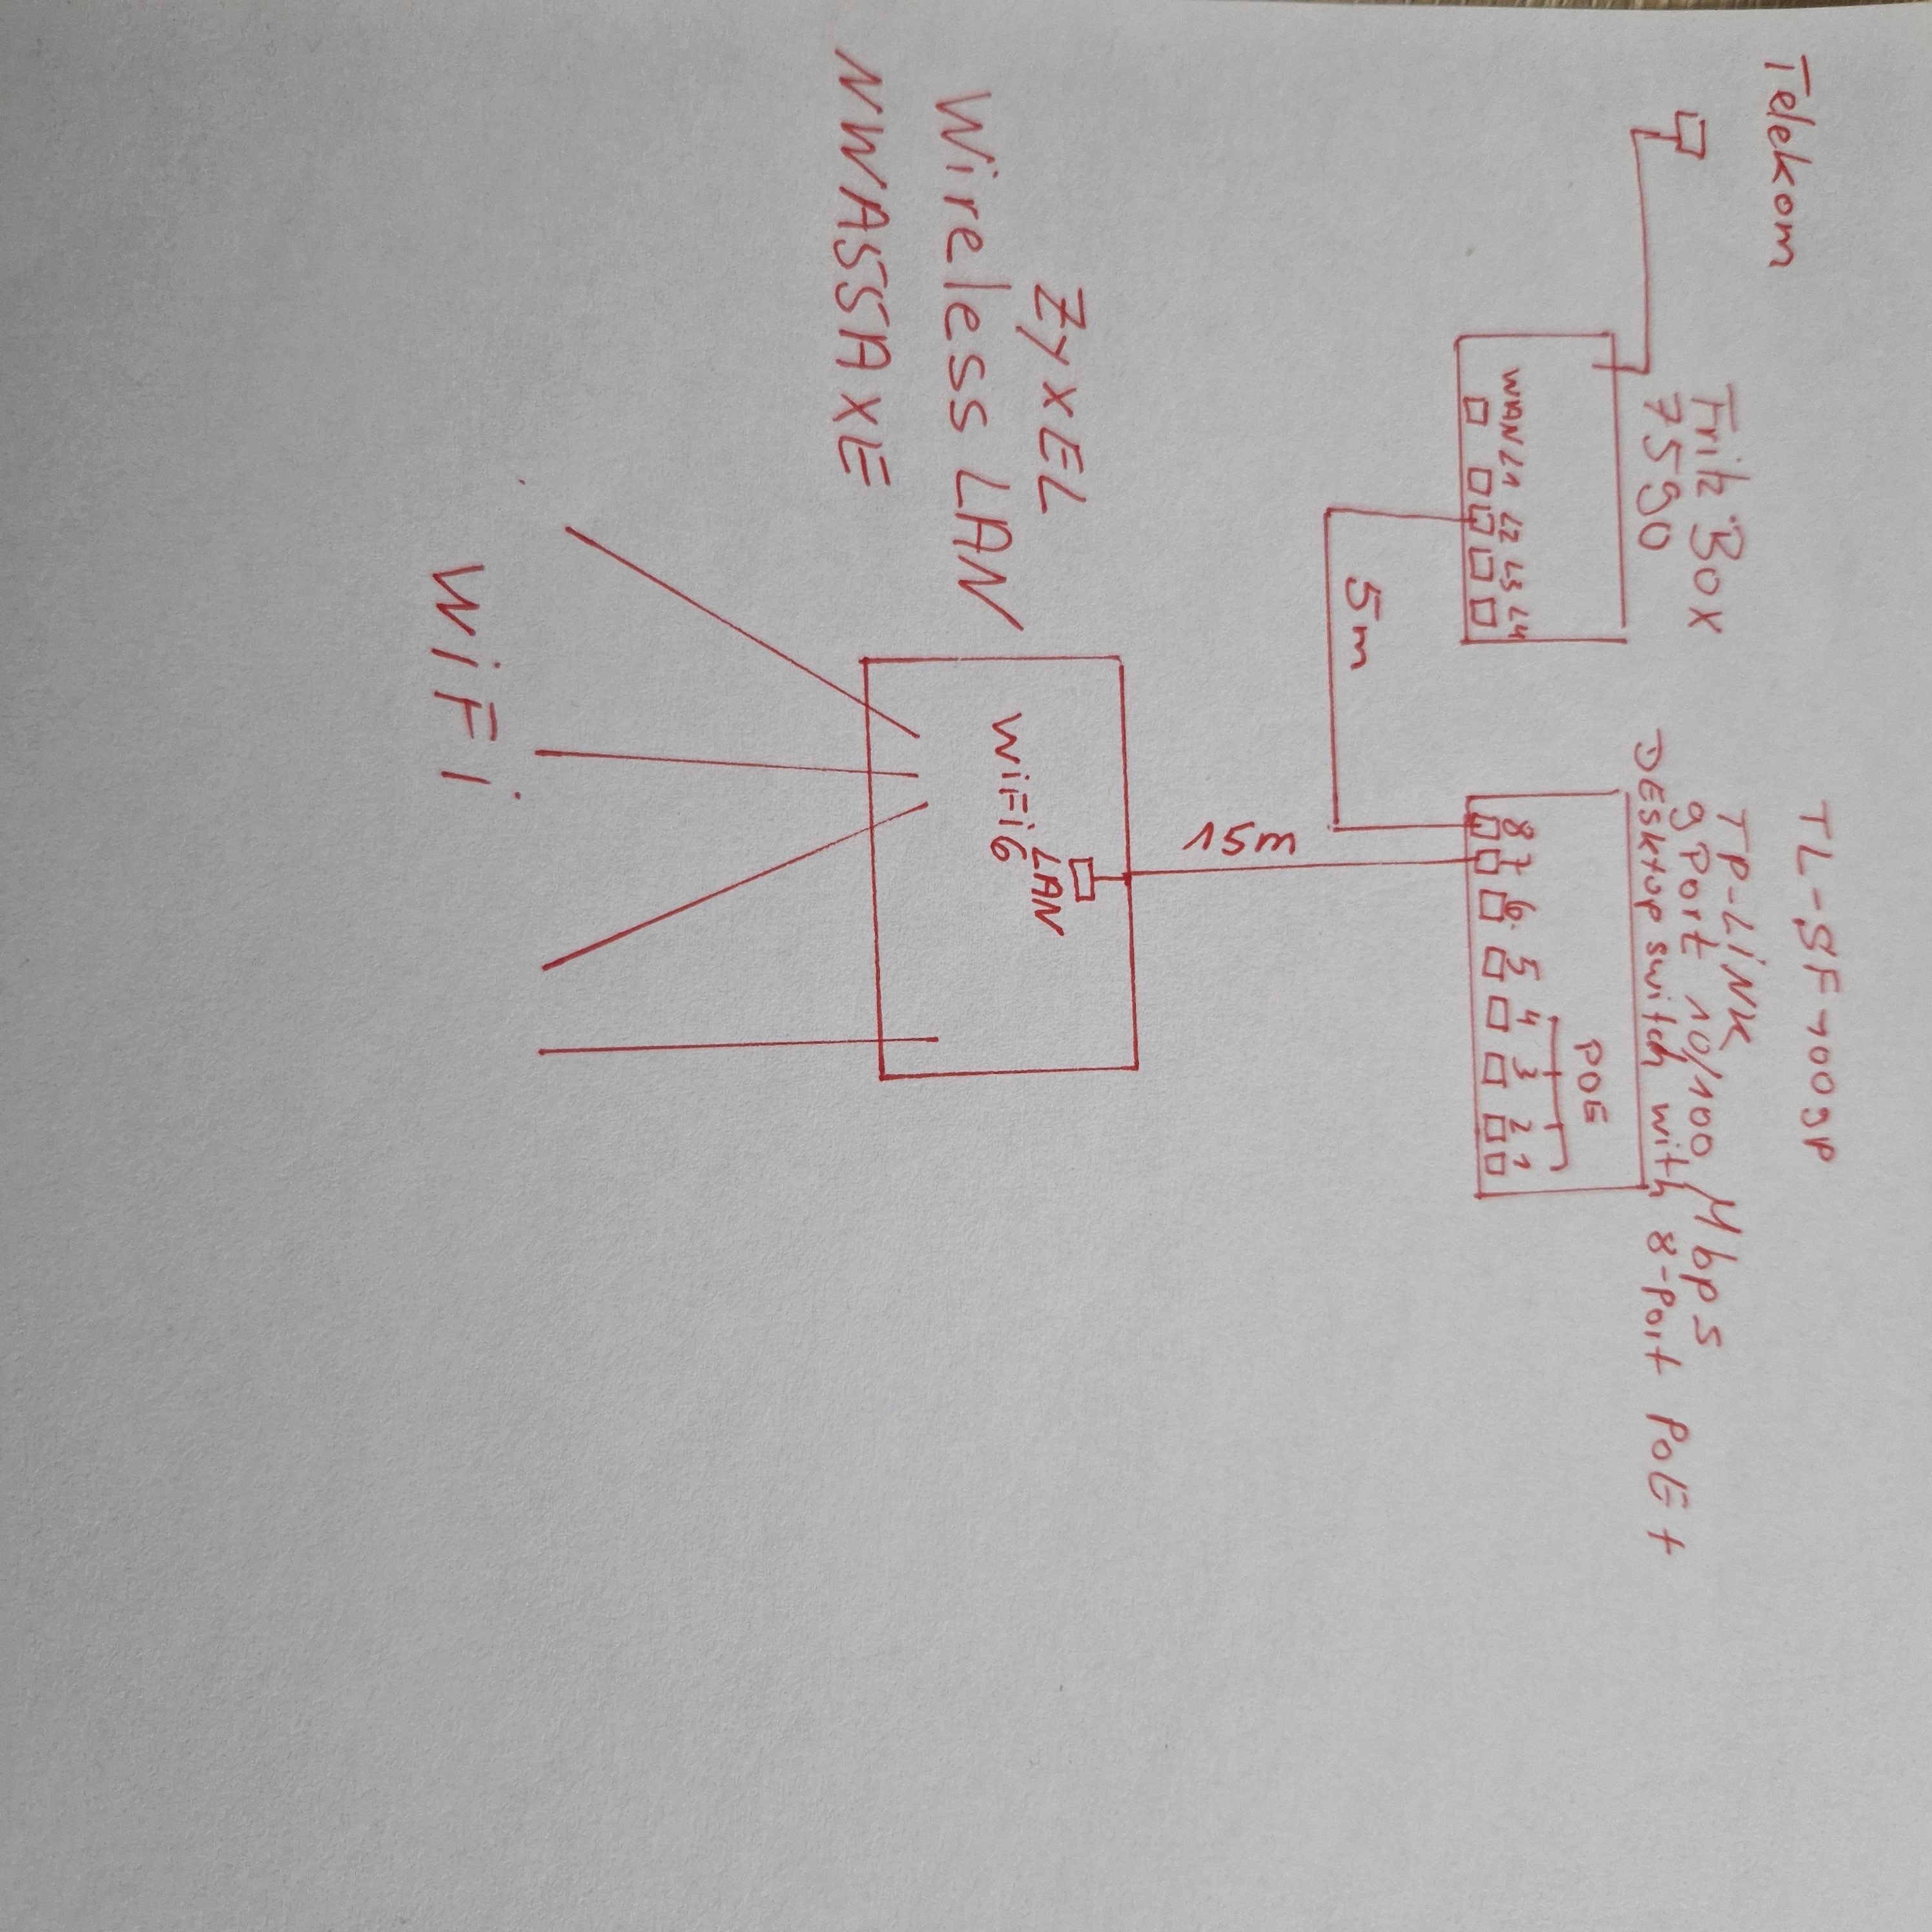 Telekom
Fritz Box
7590
WAN L1 L2 L3 L4
5m
TL-SF1009P
TP-LINK
9 Port 10/100 Mbps
DEsktop switch with 8-Port PoE+
POE
8 7 6 5 4 3 2 1
15m
ZyXEL
Wireless LAN
NWA55AXE
LAN
WiFi6
WiFi